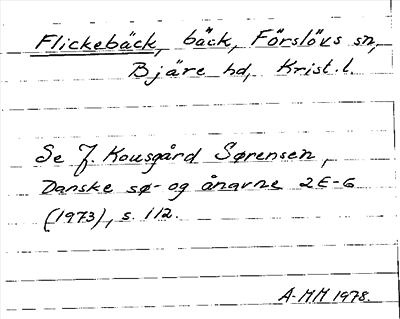 Flickebäck, bäck, Förslövs sn,
Bjäre hd, Krist. l.
Se J. Kousgård Sørensen,
Danske sø- og ånavne 2 E-G
(1973), s. 112.
A-MH 1978.